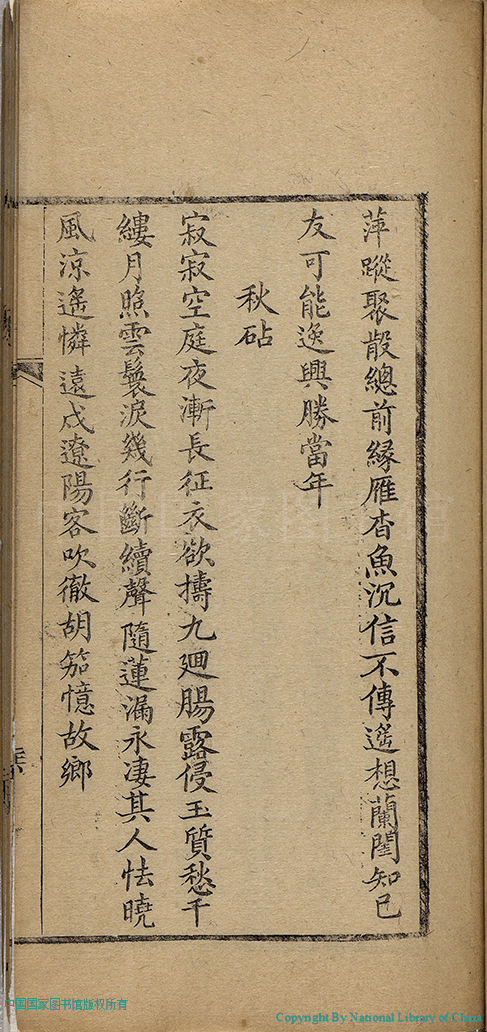 萍蹤聚散總前緣雁杳魚沉信不傳遙想蘭閨知已
友可能逸興勝當年
秋砧
寂寂空庭夜漸長征衣欲擣九迴腸露侵玉質愁千
縷月照雲鬟淚幾行斷續聲隨蓮漏永凄其人怯曉
風涼遙憐遠戍遼陽客吹徹胡笳憶故鄉
中国国家图书馆版权所有
Copyright By National Library of China